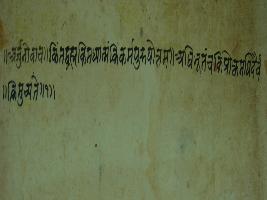 ॥अर्जुनोवाच॥किंतद्ब्रह्मकिमध्यात्मंकिंकर्मपुरुषोत्तम॥अधिभूतंचकिंप्रोक्तमधिदैवं
॥किमुच्यते॥१॥